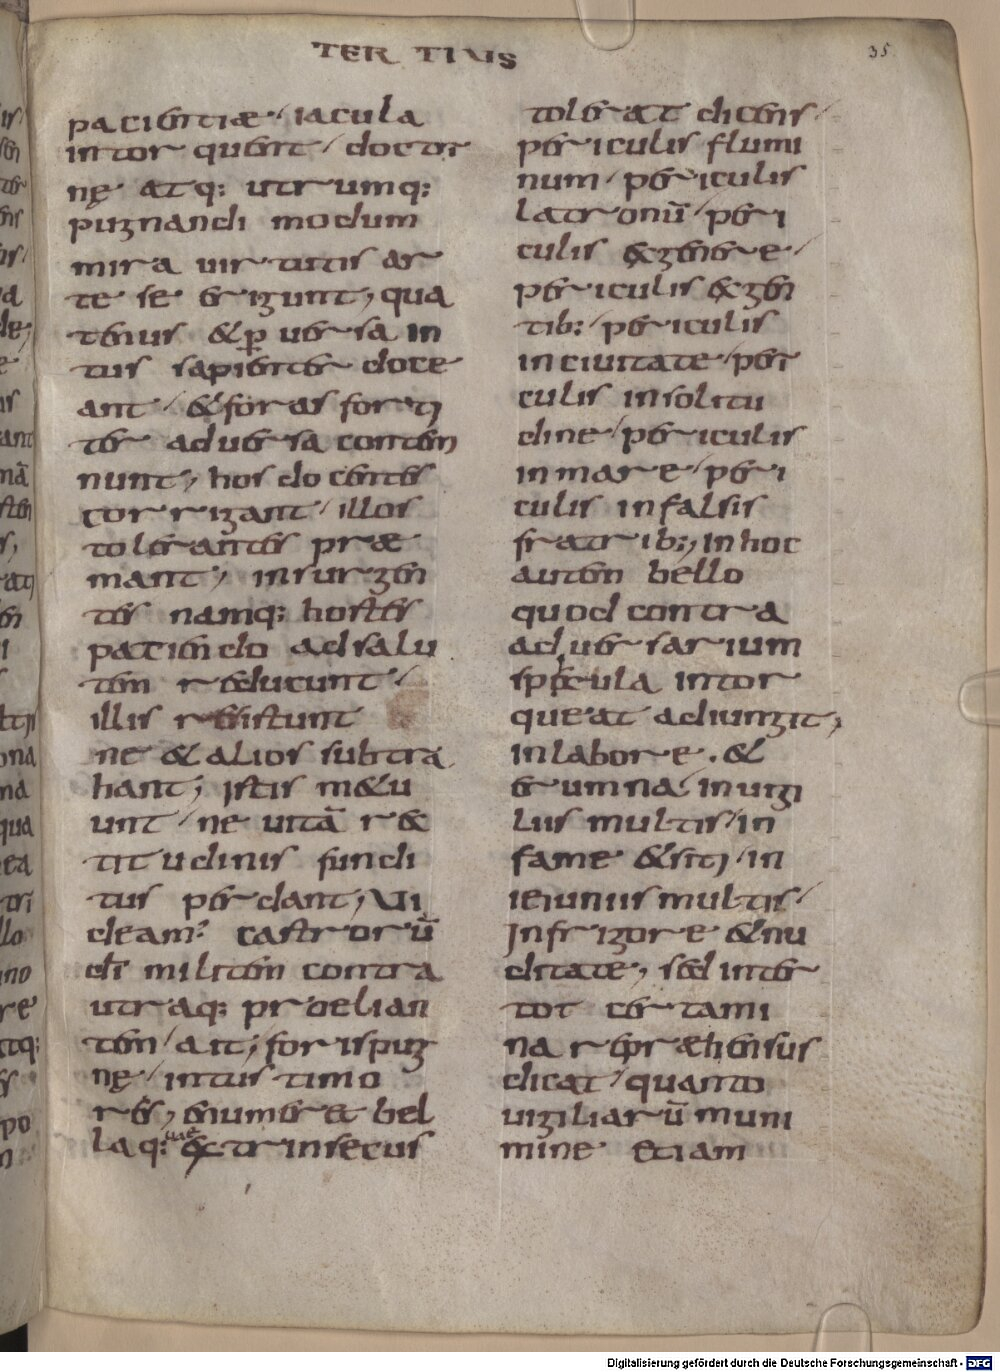 TERTIUS
35
pacientiæ / iacula
intorquent / doctri
nę atq: utrumq:
pugnandi modum
mira uirtutis ar
te se erigunt, qua
tenus & puersa in
tus sapienter doce
ant / & foras forti
ter aduersa contem
nunt, hos docentes
corrigant / illos
tolerantes præ
mant, insurgen
tes namq: hostes
patiendo ad salu
tem reducunt /
illis resistunt
ne & alios subtra
hant, istis metu
unt / ne uitā rec
titudinis fundi
tus perdant, Ui
deam' castrorū
di militem contra
utraq: proelian
tem / ait, foris pug
nę / intus timo
res, enumeret bel
laq: quæ extrinsecus
tolerat dicens /
periculis flumi
num / periculis
latronū / peri
culis ex genere /
periculis ex gen
tib: / periculis
in ciuitate / peri
culis in solitu
dine / periculis
in mare / peri
culis in falsis
fratrib:, in hoc
autem bello
quod contra
aduersarium
specula intor
queat adiungit,
in labore . &
erumna / in uigi
liis multis / in
fame & siti / in
ieiuniis multis /
In frigore & nu
ditate, sed inter
tot certami
na repræhensus
dicat / quanto
uigiliarū muni
mine etiam
Digitalisierung gefördert durch die Deutsche Forschungsgemeinschaft - DFG